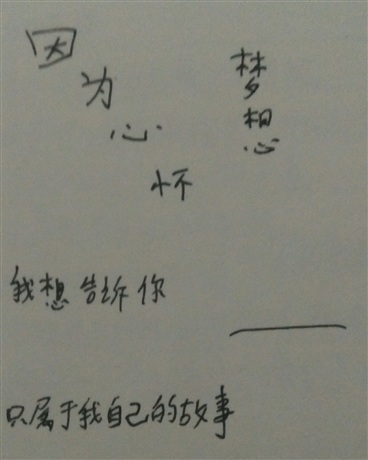 因为心怀
梦想
我想告诉你
——
只属于我自己的故事